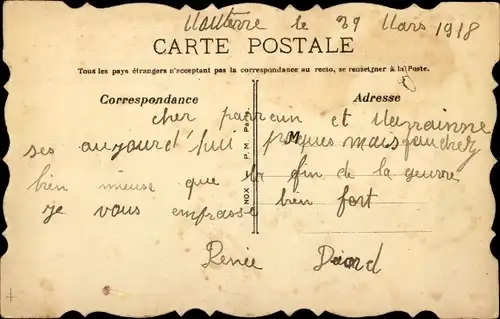 Nanterre le 29 Mars 1918
CARTE POSTALE
Tous les pays étrangers n'acceptent pas la correspondance au recto, se renseigner à la Poste.
Correspondance
Adresse
cher parrein et Marrainne
M
ses aujourd'hui Paques mais
bien mieuse que la fin de la geurre
je vous emfrasse bien fort
Renée
NOX P. M. Paris